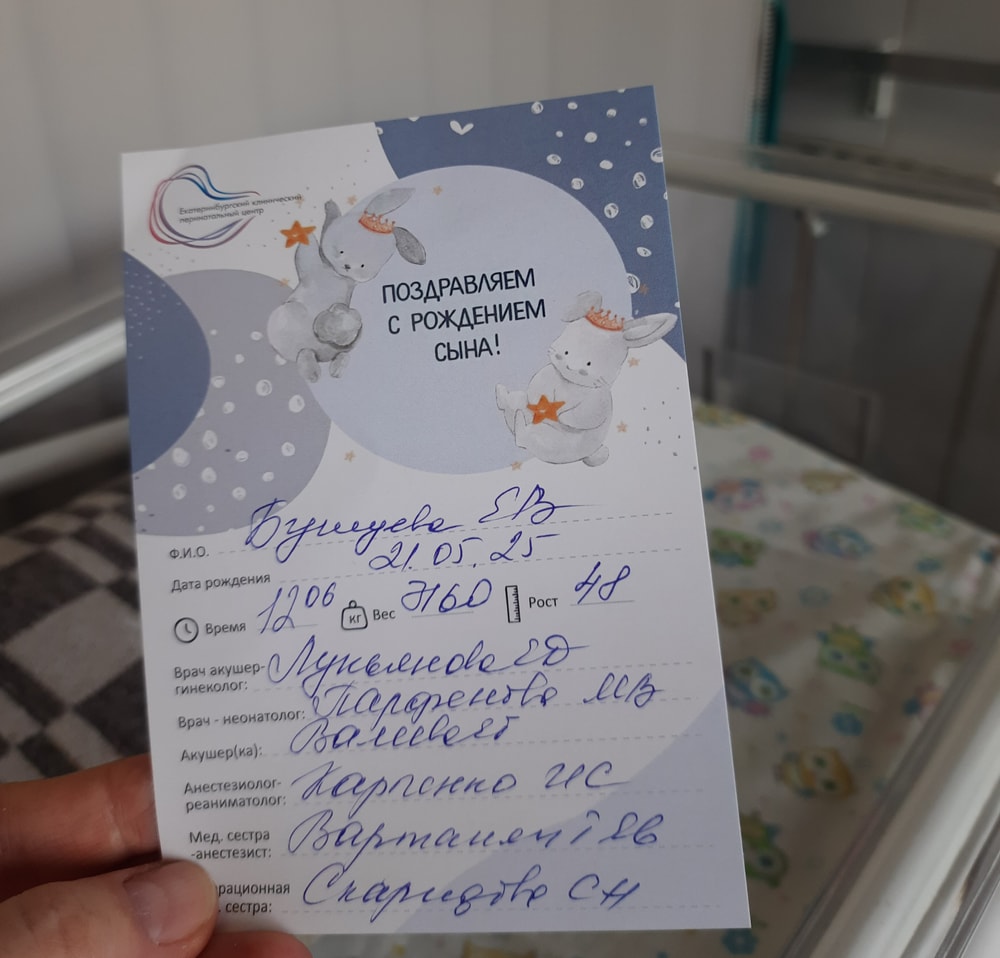 Екатеринбургский клинический
перинатальный центр
ПОЗДРАВЛЯЕМ
С РОЖДЕНИЕМ
СЫНА!
Ф.И.О. Бушуева ЕВ
Дата рождения 21.05.25
Время 12 06 кг Вес 3160 Рост 48
Врач акушер-
гинеколог: Лукьянова ЕД
Врач - неонатолог: Парфенова МВ
Акушер(ка): Валиева
Анестезиолог-
реаниматолог: Карпенко ИС
Мед. сестра
-анестезист: Вартанян
рационная
сестра: СН